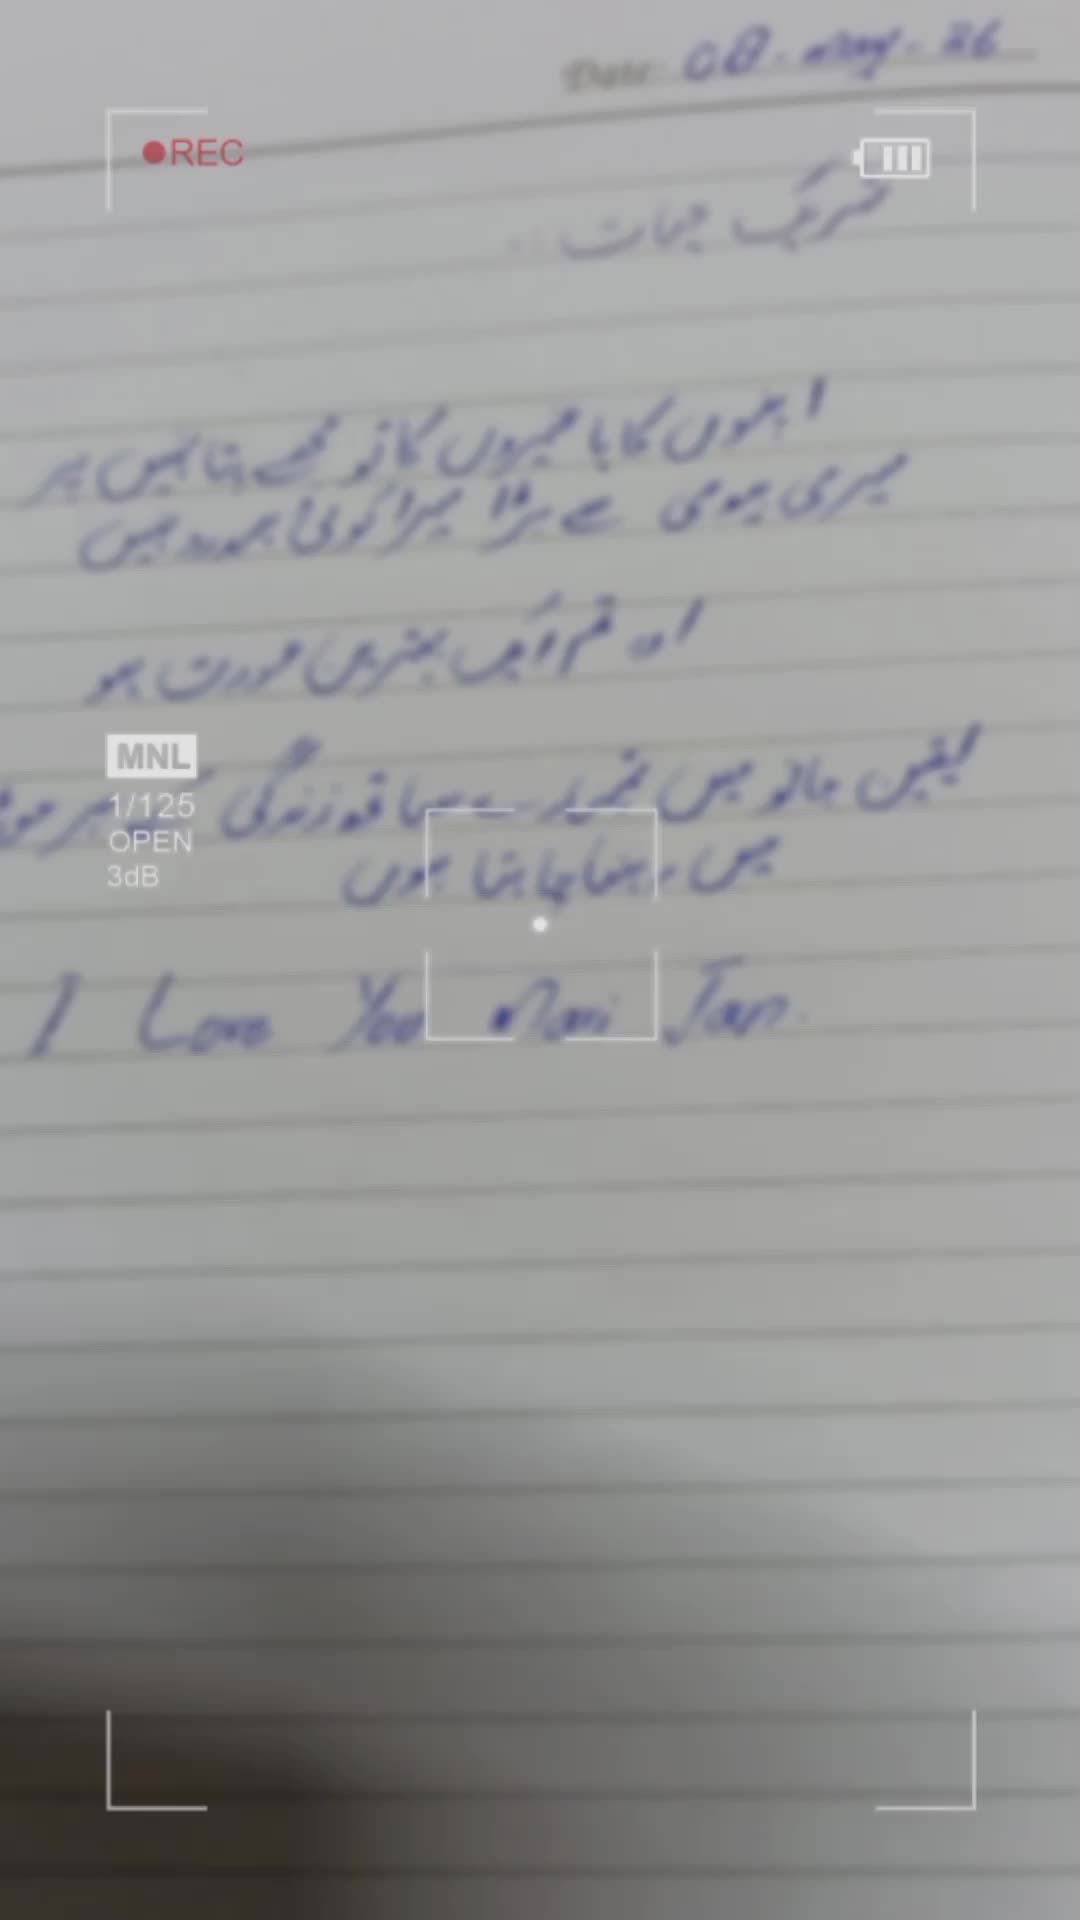 Date: 08-May-26
REC
شریک حیات ..
اپنوں کا یا غیروں کا تو مجھے پتا نہیں پر
میری بیوی سے بڑا میرا کوئی ہمدرد نہیں
اور تم ایک بہترین عورت ہو
یقین جانو میں تمہارے ساتھ زندگی کے ہر موڑ
میں رہنا چاہتا ہوں
MNL
1/125
OPEN
3dB
I Love You Mari Jan.